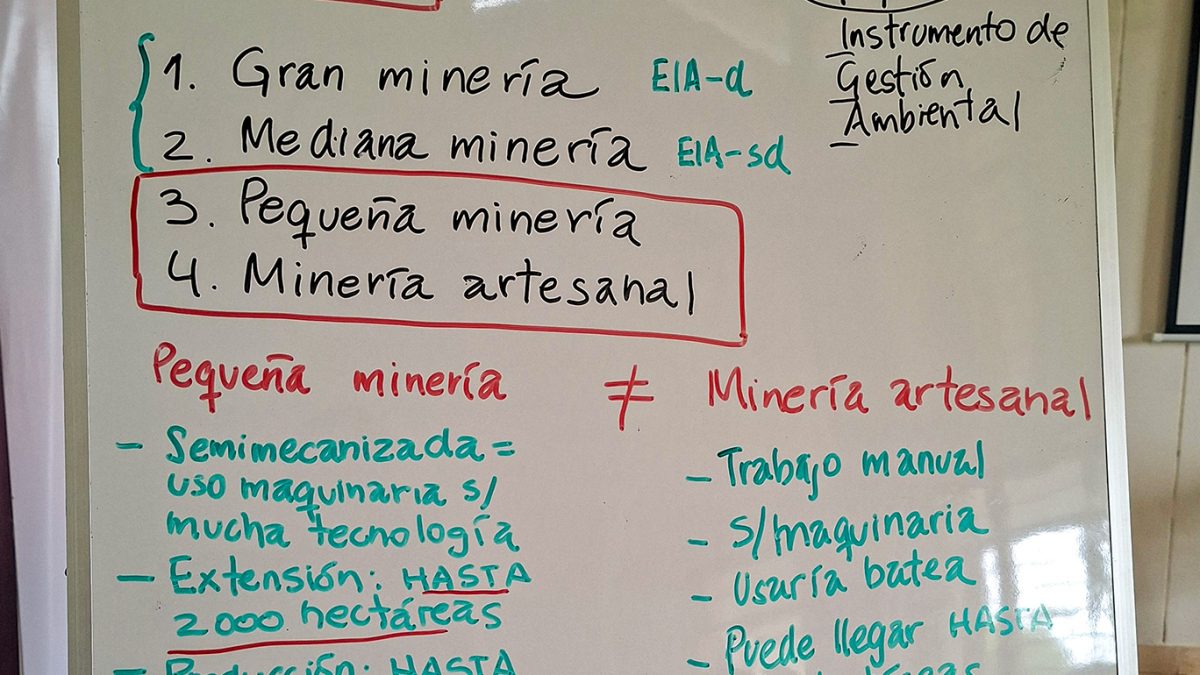 Instrumento de
Gestión
Ambiental
1. Gran minería EIA-d
2. Mediana minería EIA-sd
3. Pequeña minería
4. Minería artesanal
Pequeña minería ≠ Minería artesanal
- Semimecanizada =
uso maquinaria s/
mucha tecnología
- Extensión: HASTA
2000 hectáreas
- Producción: HASTA
- Trabajo manual
- s/maquinaria
- Usaría batea
- Puede llegar HASTA